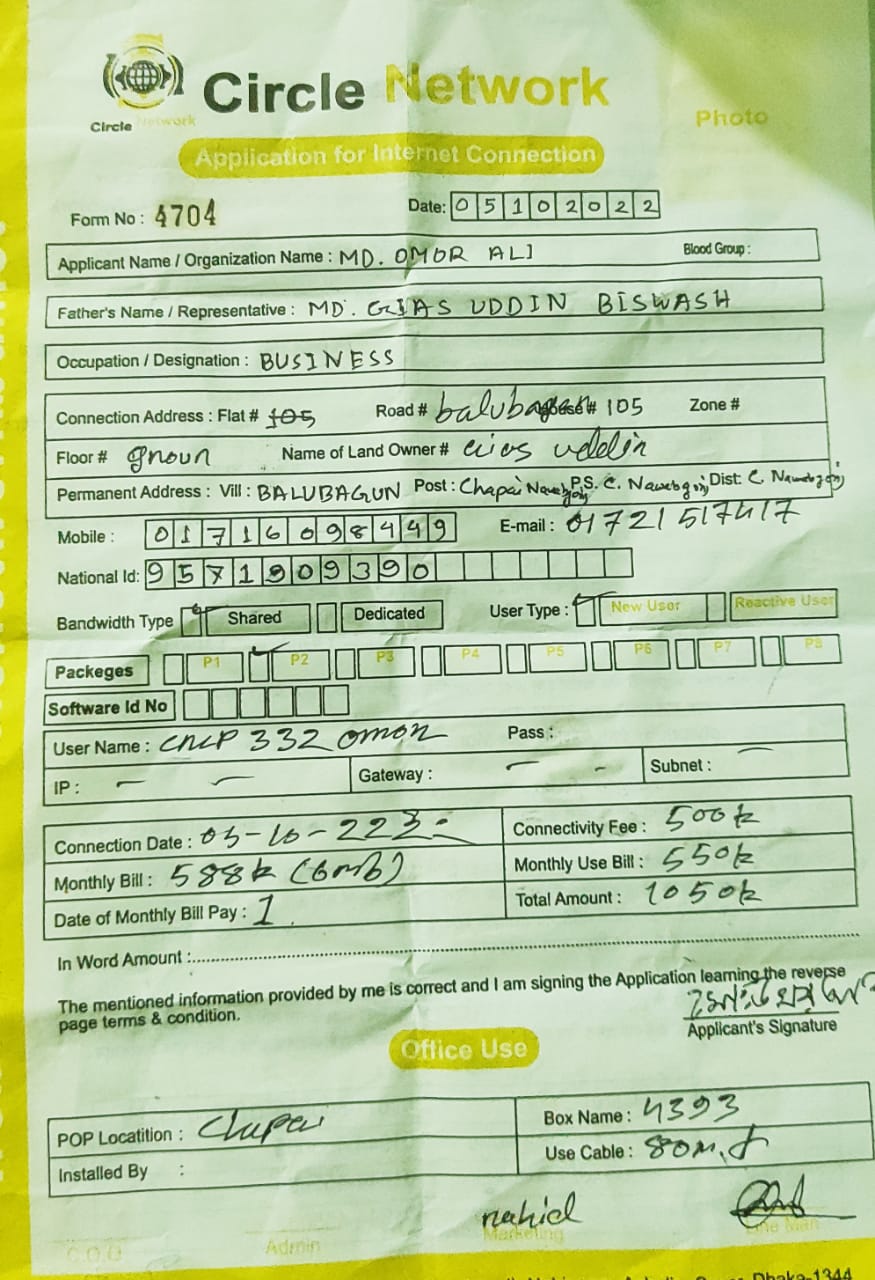 Circle Network
Circle Network
Photo
Application for Internet Connection
Form No : 4704
Date: 05102022
Applicant Name / Organization Name : MD. OMOR ALI
Blood Group :
Father's Name / Representative : MD. GIAS UDDIN BISWASH
Occupation / Designation : BUSINESS
Connection Address : Flat # 105 Road # balubagan House # 105 Zone #
Floor # groun Name of Land Owner # Gias uddin
Permanent Address : Vill : BALUBAGUN Post : Chapai Nawabgonj P.S. C. Nawabgonj Dist: C. Nawabgonj
Mobile : 01716098449 E-mail : 01721517417
National Id: 9571909390
Bandwidth Type Shared Dedicated User Type : New User Reactive User
Packeges P1 P2 P3 P4 P5 P6 P7 P8
Software Id No
User Name : CNCP 332 omor Pass :
IP : Gateway : Subnet :
Connection Date : 05-10-22 Connectivity Fee : 500
Monthly Bill : 588 (6mb) Monthly Use Bill : 550
Date of Monthly Bill Pay : 1 Total Amount : 1050
In Word Amount :
The mentioned information provided by me is correct and I am signing the Application learning the reverse
page terms & condition.
Applicant's Signature
Office Use
POP Locatition : Chapai Box Name : 4393
Installed By : Use Cable : 80m.
nahid
C.O.O Admin Marketing Line Man
Dhaka-1344